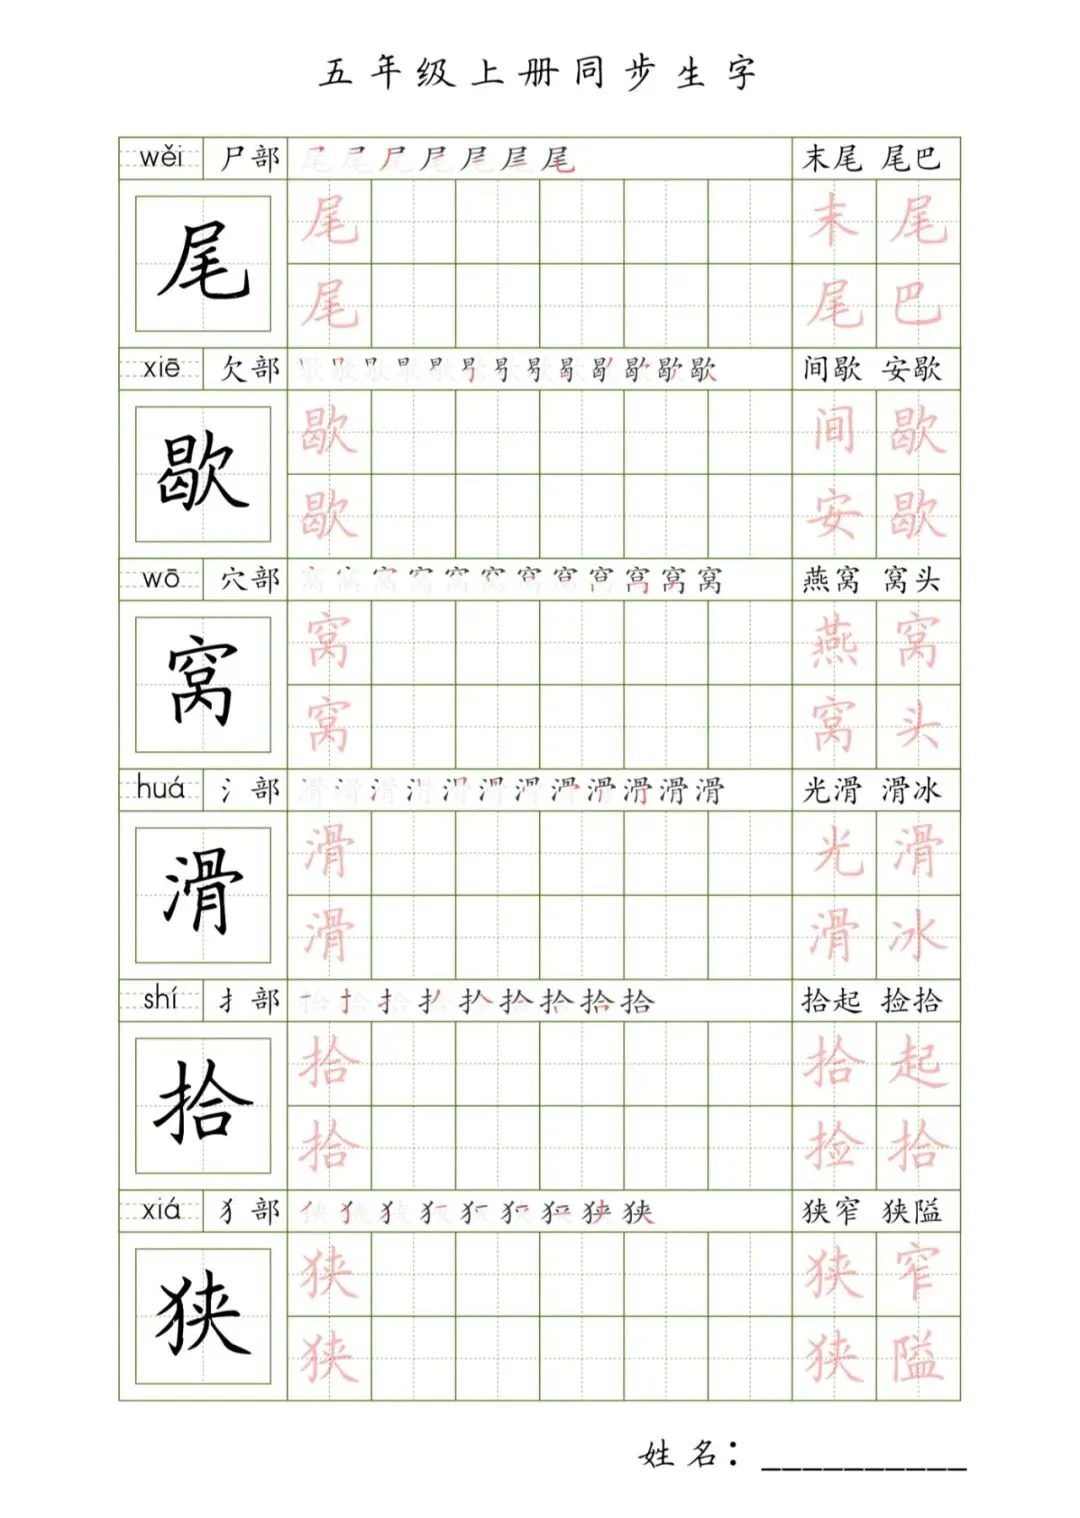 五年级上册同步生字
wěi 尸部 尾尾尾尾尾尾尾 末尾 尾巴
尾 尾 末尾
尾 尾巴
xiē 欠部 歇歇歇歇歇歇歇歇歇歇歇歇歇 间歇 安歇
歇 歇 间歇
歇 安歇
wō 穴部 窝窝窝窝窝窝窝窝窝窝窝窝 燕窝 窝头
窝 窝 燕窝
窝 窝头
huá 氵部 滑滑滑滑滑滑滑滑滑滑滑滑 光滑 滑冰
滑 滑 光滑
滑 滑冰
shí 扌部 拾拾拾拾拾拾拾拾拾 拾起 捡拾
拾 拾 拾起
拾 捡拾
xiá 犭部 狭狭狭狭狭狭狭狭狭 狭窄 狭隘
狭 狭 狭窄
狭 狭隘
姓名：__________